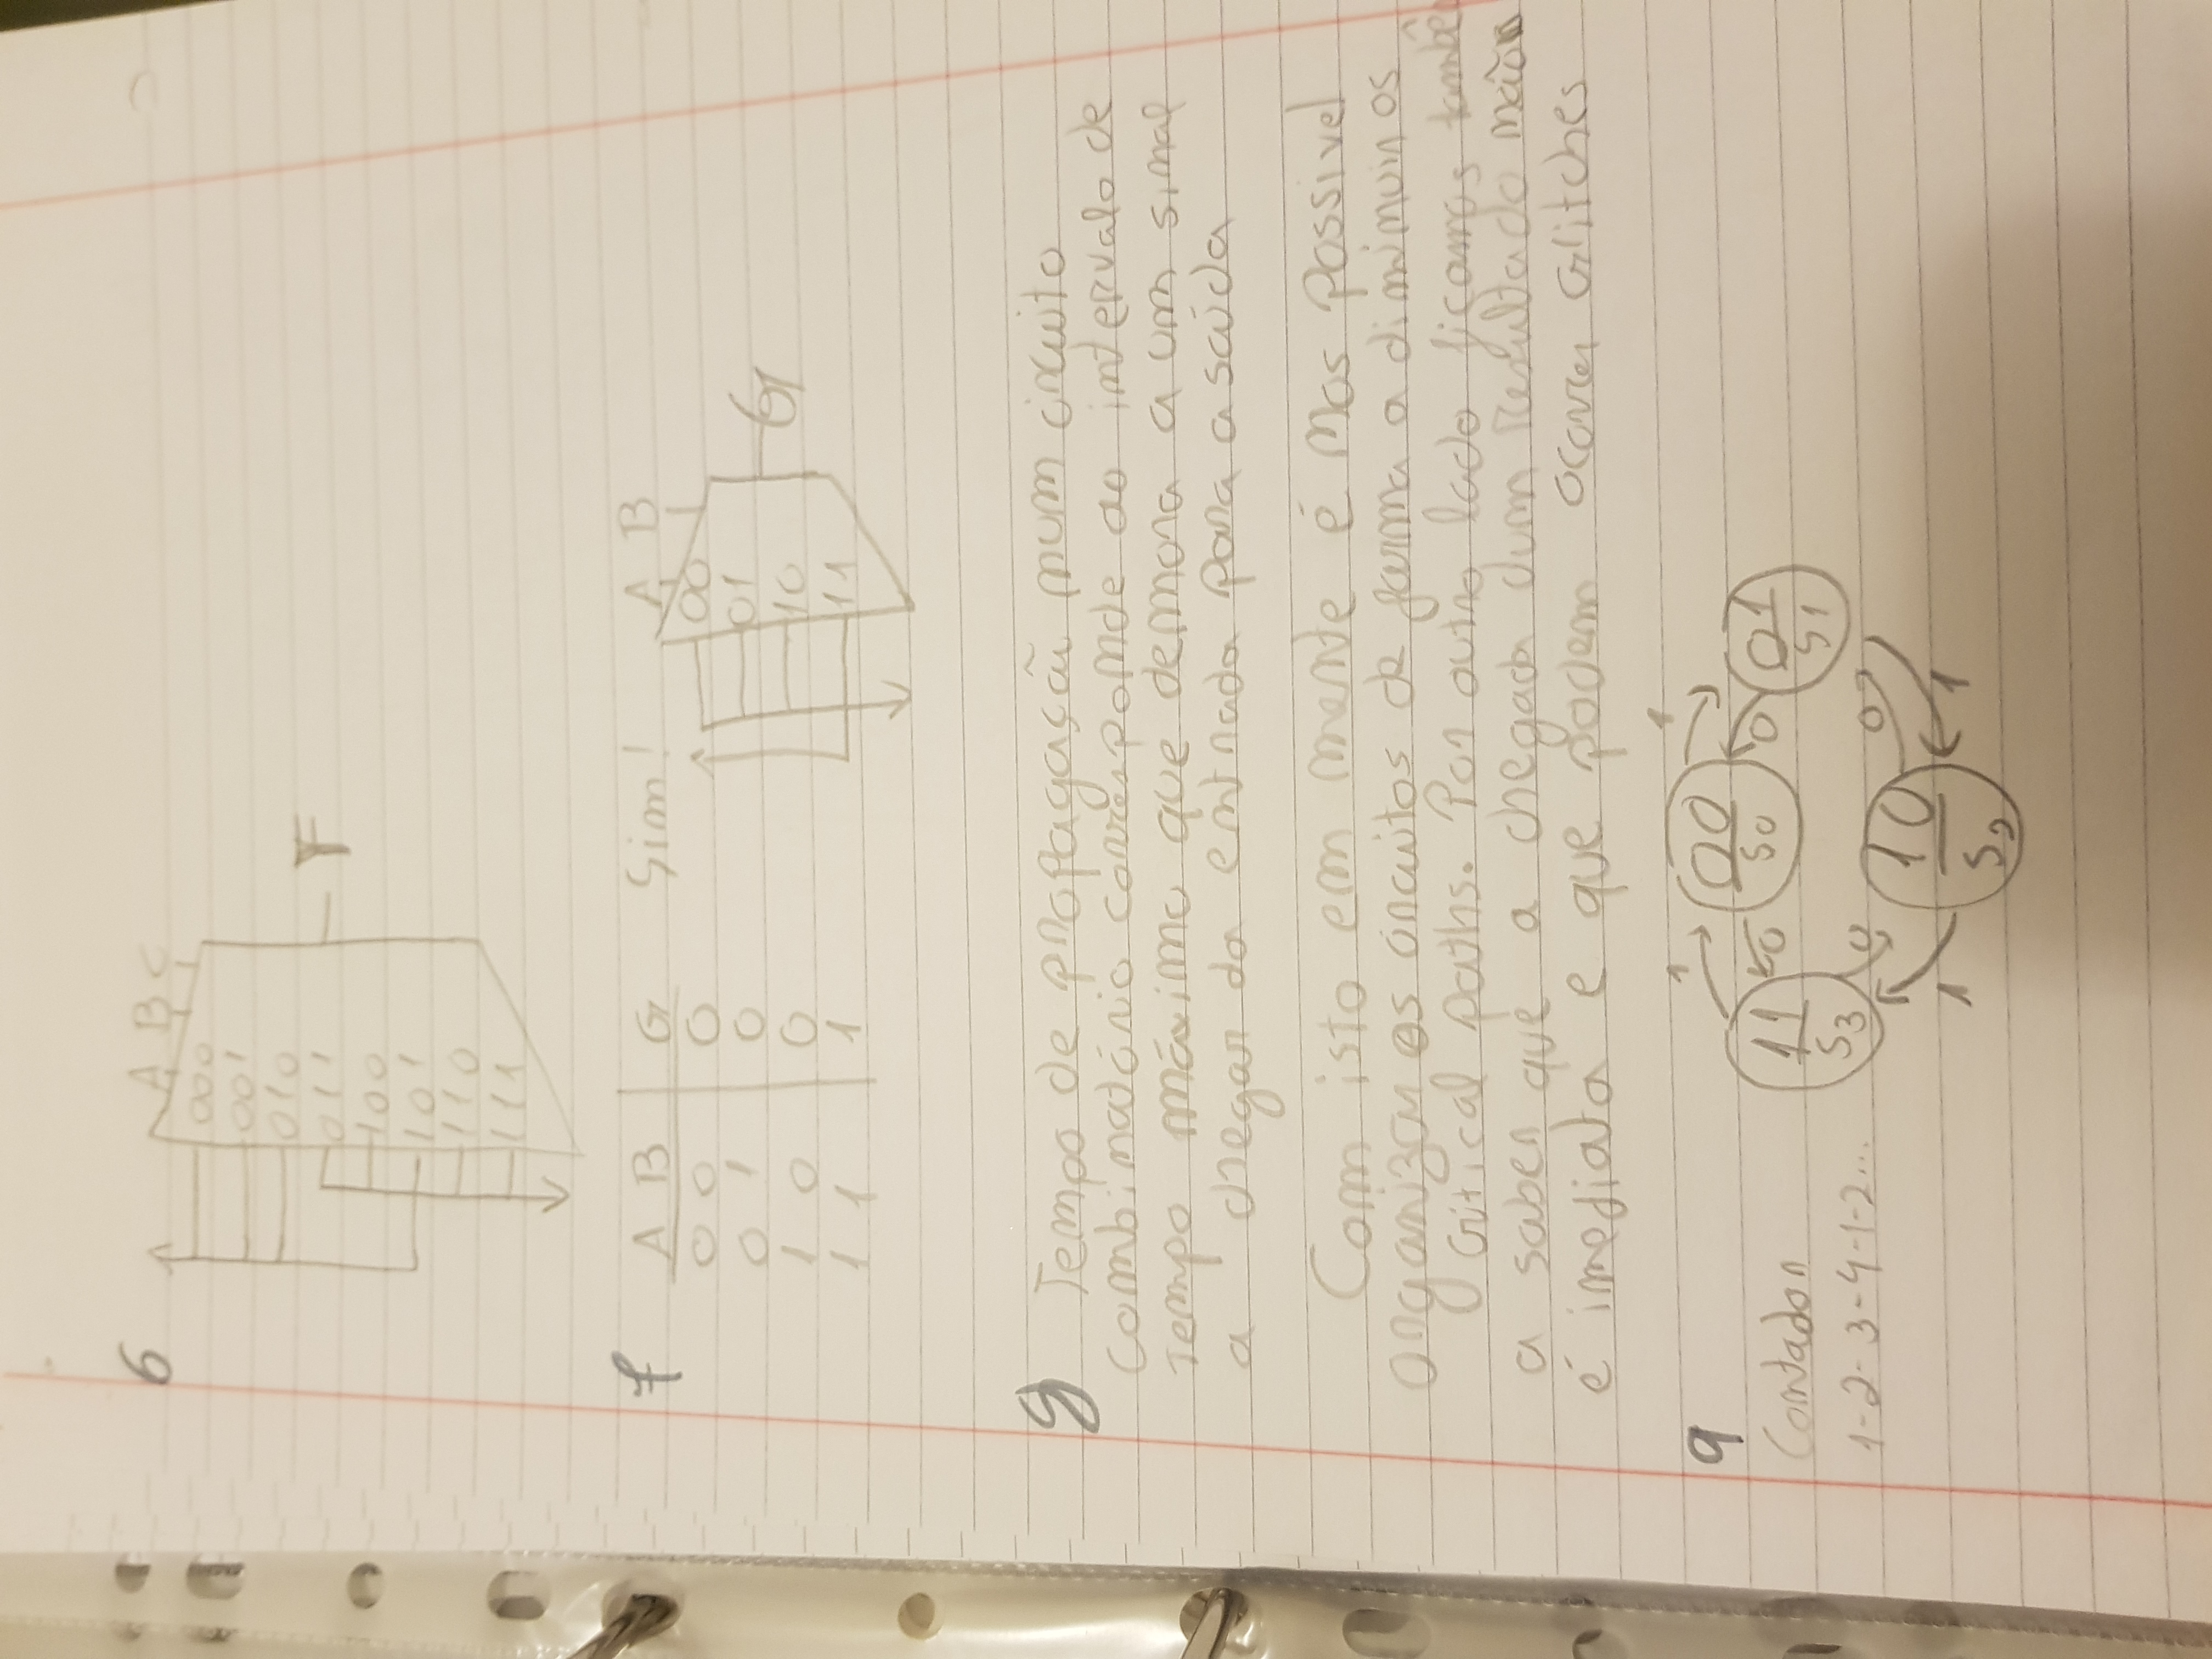 6
A B C
000
001
010
011
100
101
110
111
F
7
A B G
0 0 0
0 1 0
1 0 0
1 1 1
Sim!
A B
00
01
10
11
G
8 Tempo de propagação num circuito
combinatório corresponde ao intervalo de
tempo máximo que demora a um sinal
a chegar da entrada para a saída
Com isto em mente é nos possivel
organizar os circuitos de forma a diminuir os
critical paths. Por outro lado ficamos també
a saber que a chegada dum resultado não
é imediata e que podem ocorrer Glitches
9
Contador
1-2-3-4-1-2...
1 1
00
S0
0 0
11
S3
01
S1
0 0
10
S2
1 1